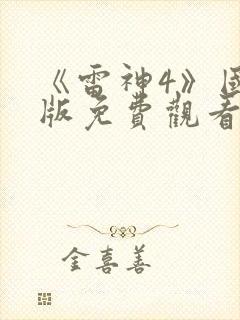 《雷神4》国
版免費觀看
金喜善